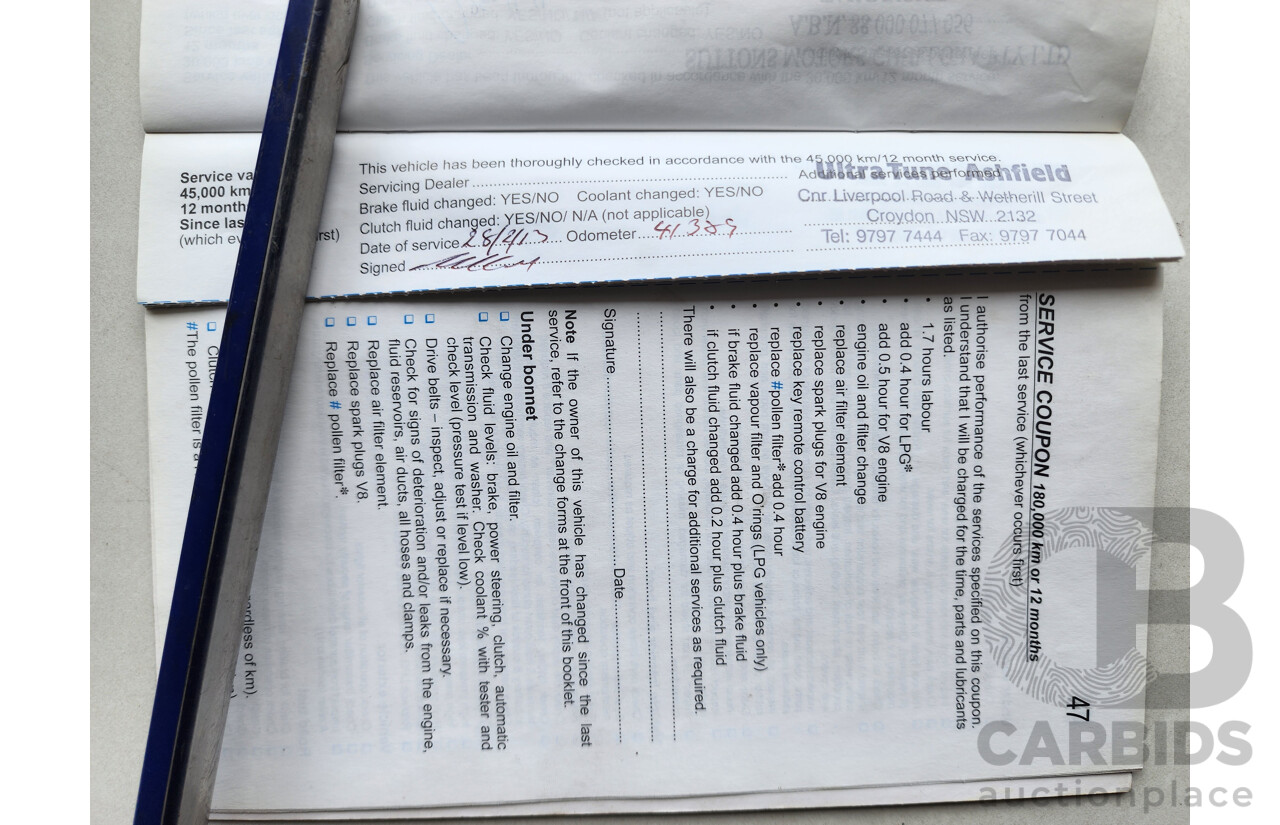 SUTTONS MOTORS
A.B.N. 88 000 017 656
Service va
45,000 km
12 month
Since las
(which ev
rst)
This vehicle has been thoroughly checked in accordance with the 45,000 km/12 month service.
Servicing Dealer
Additional services performed
Brake fluid changed: YES/NO Coolant changed: YES/NO
Clutch fluid changed: YES/NO/ N/A (not applicable)
Date of service Odometer 41389
Signed
UltraTune Ashfield
Cnr. Liverpool Road & Wetherill Street
Croydon NSW 2132
Tel: 9797 7444 Fax: 9797 7044
47
SERVICE COUPON 180,000 km or 12 months
from the last service (whichever occurs first)
I authorise performance of the services specified on this coupon.
I understand that I will be charged for the time, parts and lubricants
as listed.
• 1.7 hours labour
• add 0.4 hour for LPG*
• add 0.5 hour for V8 engine
• engine oil and filter change
• replace air filter element
• replace spark plugs for V8 engine
• replace key remote control battery
• replace #pollen filter* add 0.4 hour
• replace vapour filter and O'rings (LPG vehicles only)
• if brake fluid changed add 0.4 hour plus brake fluid
• if clutch fluid changed add 0.2 hour plus clutch fluid
There will also be a charge for additional services as required.
Signature Date
Note If the owner of this vehicle has changed since the last
service, refer to the change forms at the front of this booklet.
Under bonnet
❑ Change engine oil and filter.
❑ Check fluid levels: brake, power steering, clutch, automatic
transmission and washer. Check coolant % with tester and
check level (pressure test if level low).
❑ Drive belts – inspect, adjust or replace if necessary.
❑ Check for signs of deterioration and/or leaks from the engine,
fluid reservoirs, air ducts, all hoses and clamps.
❑ Replace air filter element.
❑ Replace spark plugs V8.
❑ Replace # pollen filter*.
❑ Clutch
#The pollen filter is a
ardless of km).
CARBIDS
auctionplace